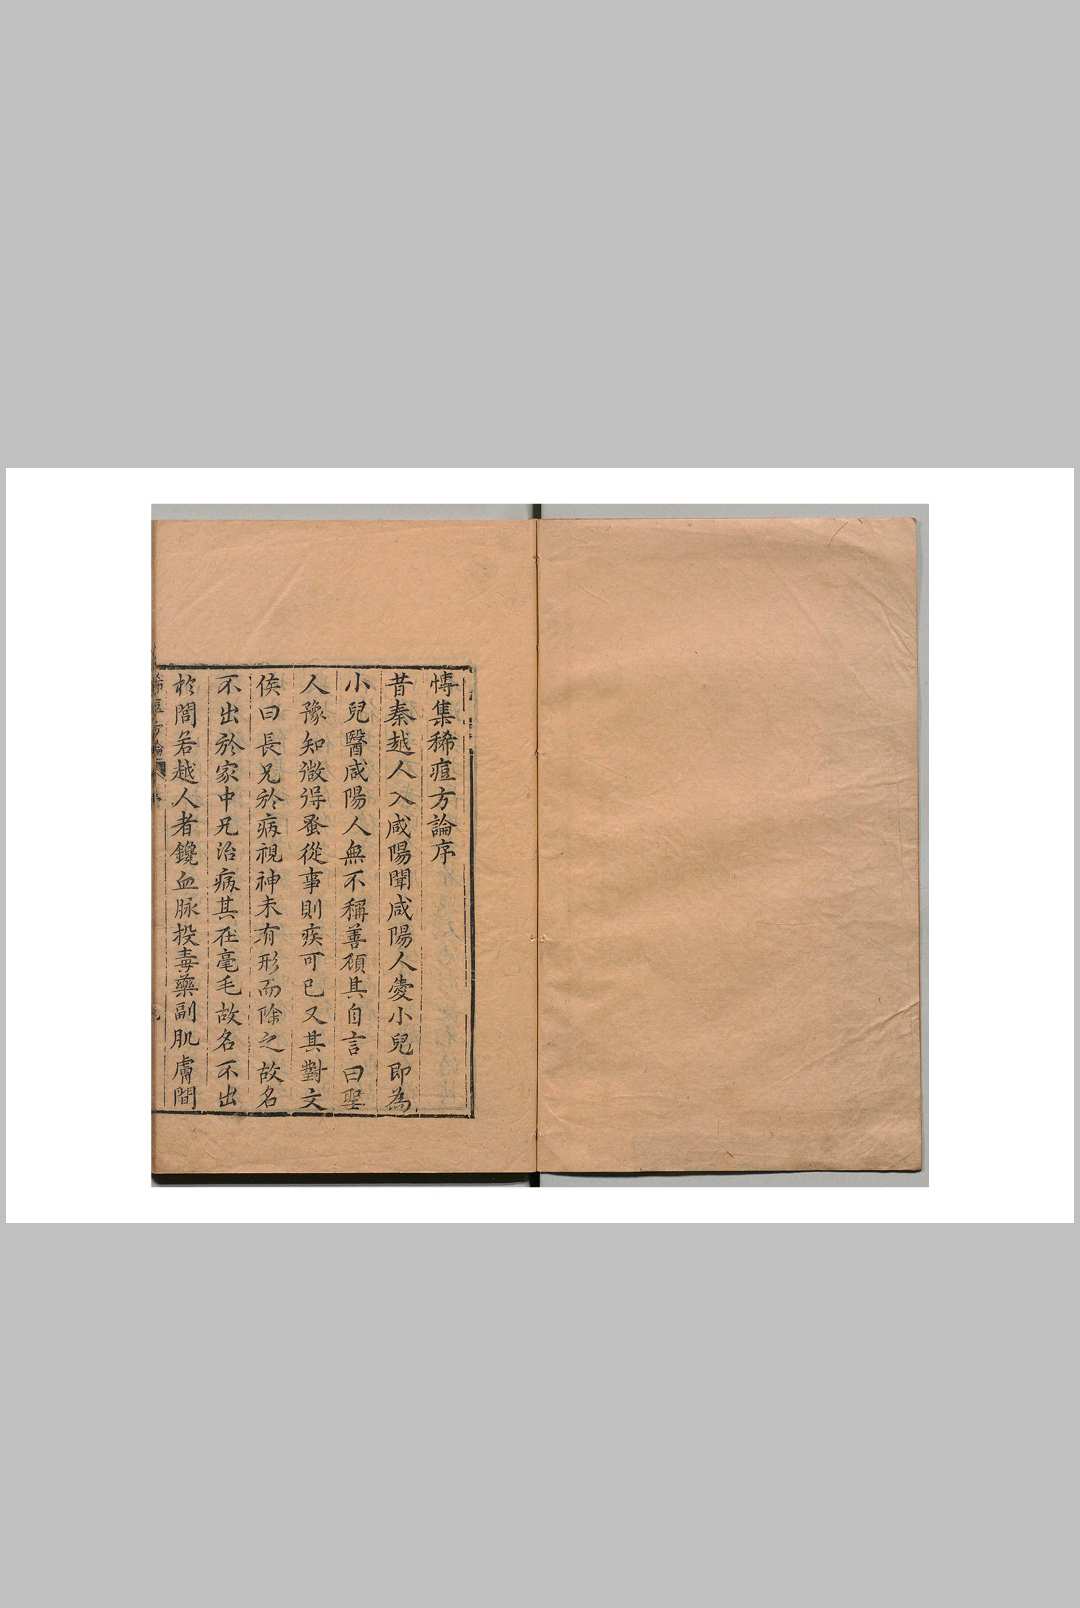 博集稀痘方論序
昔秦越人入咸陽聞咸陽人愛小兒即為
小兒醫咸陽人無不稱善顧其自言曰聖
人豫知微得蚤從事則疾可已又其對文
侯曰長兄於病視神未有形而除之故名
不出於家中兄治病其在毫毛故名不出
於閭若越人者鑱血脉投毒藥副肌膚間
稀痘方論 序